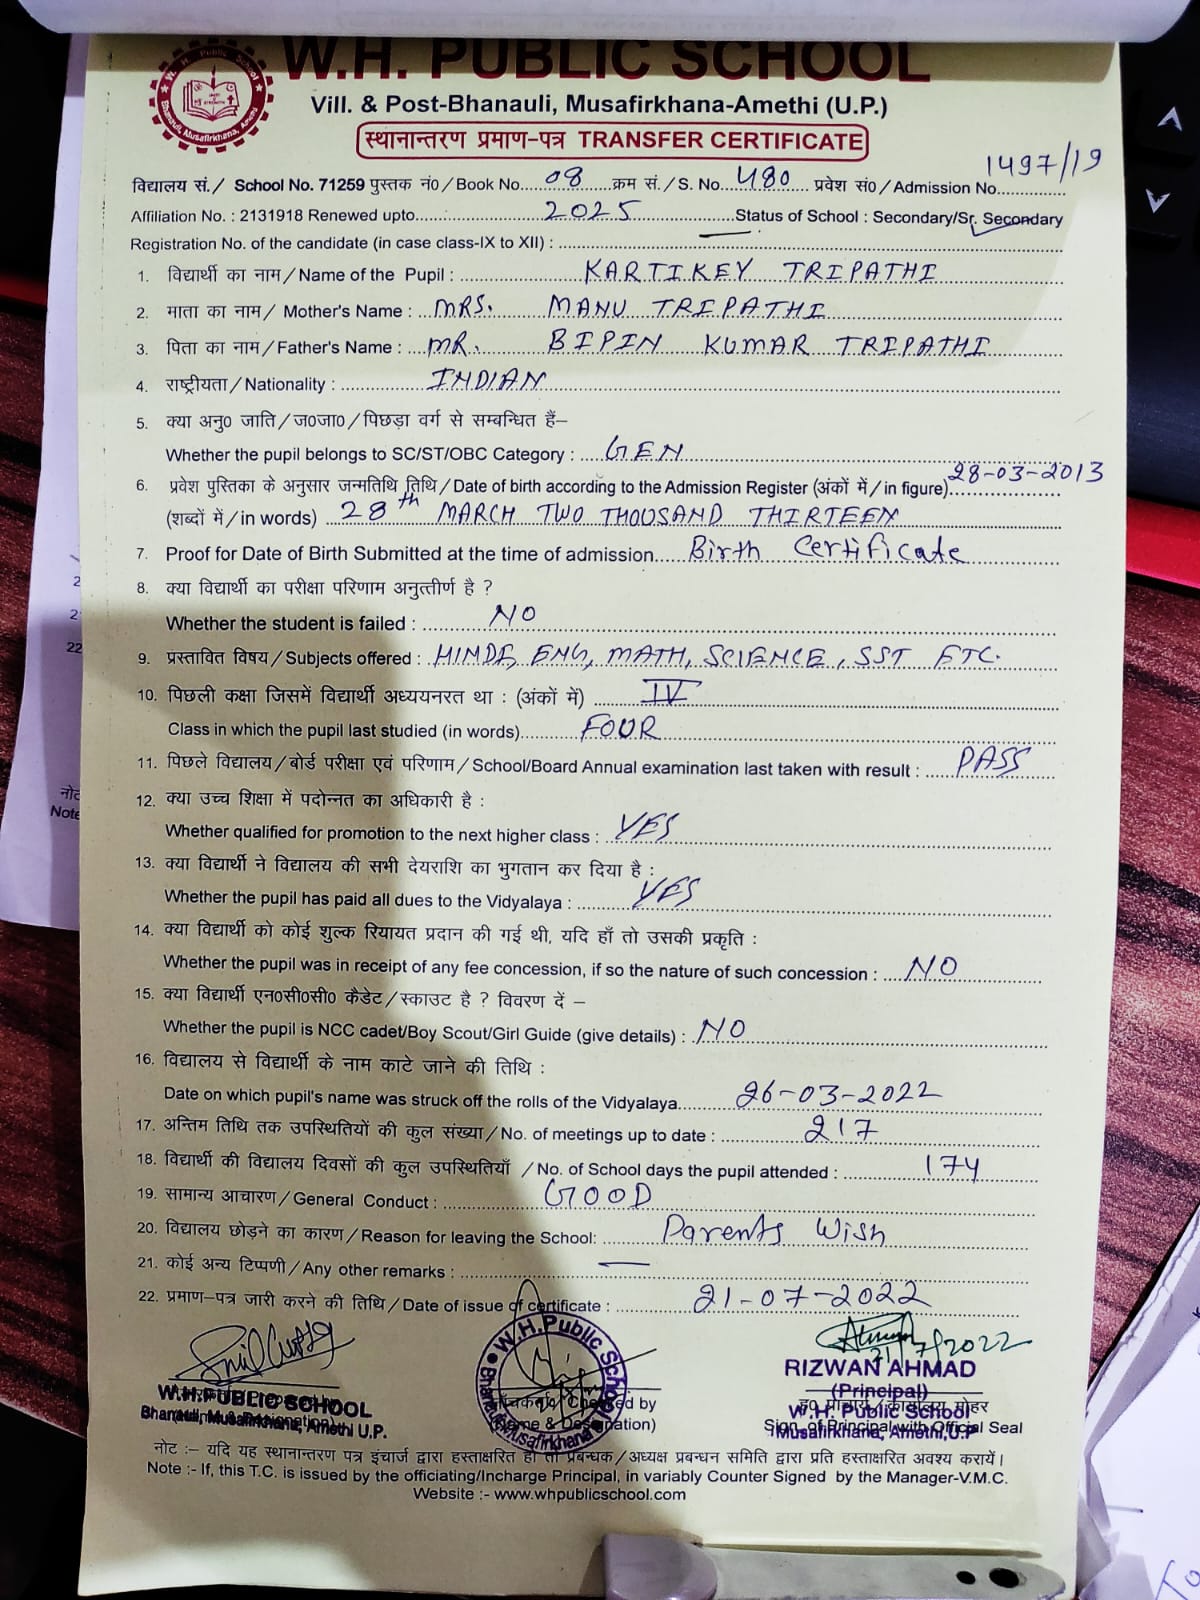 W.H. PUBLIC SCHOOL
Vill. & Post-Bhanauli, Musafirkhana-Amethi (U.P.)
स्थानान्तरण प्रमाण-पत्र TRANSFER CERTIFICATE
1497/19
विद्यालय सं./ School No. 71259 पुस्तक नं0/Book No. 08 क्रम सं./S. No. 480 प्रवेश सं0/Admission No.
Affiliation No. : 2131918 Renewed upto 2025 Status of School : Secondary/Sr. Secondary
Registration No. of the candidate (in case class-IX to XII) :
1. विद्यार्थी का नाम/Name of the Pupil : KARTIKEY TRIPATHI
2. माता का नाम/ Mother's Name : MRS. MANU TRIPATHI
3. पिता का नाम/Father's Name : MR. BIPIN KUMAR TRIPATHI
4. राष्ट्रीयता/Nationality : INDIAN
5. क्या अनु0 जाति/ज0जा0/पिछड़ा वर्ग से सम्बन्धित हैं–
Whether the pupil belongs to SC/ST/OBC Category : GEN
6. प्रवेश पुस्तिका के अनुसार जन्मतिथि तिथि/Date of birth according to the Admission Register (अंकों में/in figure) 28-03-2013
(शब्दों में/in words) 28th MARCH TWO THOUSAND THIRTEEN
7. Proof for Date of Birth Submitted at the time of admission Birth Certificate
8. क्या विद्यार्थी का परीक्षा परिणाम अनुत्तीर्ण है ?
Whether the student is failed : NO
9. प्रस्तावित विषय/Subjects offered : HINDI, ENG, MATH, SCIENCE, SST ETC.
10. पिछली कक्षा जिसमें विद्यार्थी अध्ययनरत था : (अंकों में) IV
Class in which the pupil last studied (in words) FOUR
11. पिछले विद्यालय/बोर्ड परीक्षा एवं परिणाम/School/Board Annual examination last taken with result : PASS
12. क्या उच्च शिक्षा में पदोन्नत का अधिकारी है :
Whether qualified for promotion to the next higher class : YES
13. क्या विद्यार्थी ने विद्यालय की सभी देयराशि का भुगतान कर दिया है :
Whether the pupil has paid all dues to the Vidyalaya : YES
14. क्या विद्यार्थी को कोई शुल्क रियायत प्रदान की गई थी, यदि हाँ तो उसकी प्रकृति :
Whether the pupil was in receipt of any fee concession, if so the nature of such concession : NO
15. क्या विद्यार्थी एन0सी0सी0 कैडेट/स्काउट है ? विवरण दें –
Whether the pupil is NCC cadet/Boy Scout/Girl Guide (give details) : NO
16. विद्यालय से विद्यार्थी के नाम काटे जाने की तिथि :
Date on which pupil's name was struck off the rolls of the Vidyalaya 26-03-2022
17. अन्तिम तिथि तक उपस्थितियों की कुल संख्या/No. of meetings up to date : 217
18. विद्यार्थी की विद्यालय दिवसों की कुल उपस्थितियाँ /No. of School days the pupil attended : 174
19. सामान्य आचारण/General Conduct : GOOD
20. विद्यालय छोड़ने का कारण/Reason for leaving the School: Parents Wish
21. कोई अन्य टिप्पणी/Any other remarks : —
22. प्रमाण-पत्र जारी करने की तिथि/Date of issue of certificate : 21-07-2022
21/7/2022
RIZWAN AHMAD
(Principal)
W.H. Public School
Musafirkhana, Amethi, U.P
Sign. of Principal with Official Seal
W.H. Public School
W.H.PUBLIC SCHOOL
Bhanauli, Musafirkhana, Amethi U.P.
नोट :– यदि यह स्थानान्तरण पत्र इंचार्ज द्वारा हस्ताक्षरित हो तो प्रबन्धक/अध्यक्ष प्रबन्धन समिति द्वारा प्रति हस्ताक्षरित अवश्य करायें।
Note :- If, this T.C. is issued by the officiating/Incharge Principal, in variably Counter Signed by the Manager-V.M.C.
Website :- www.whpublicschool.com